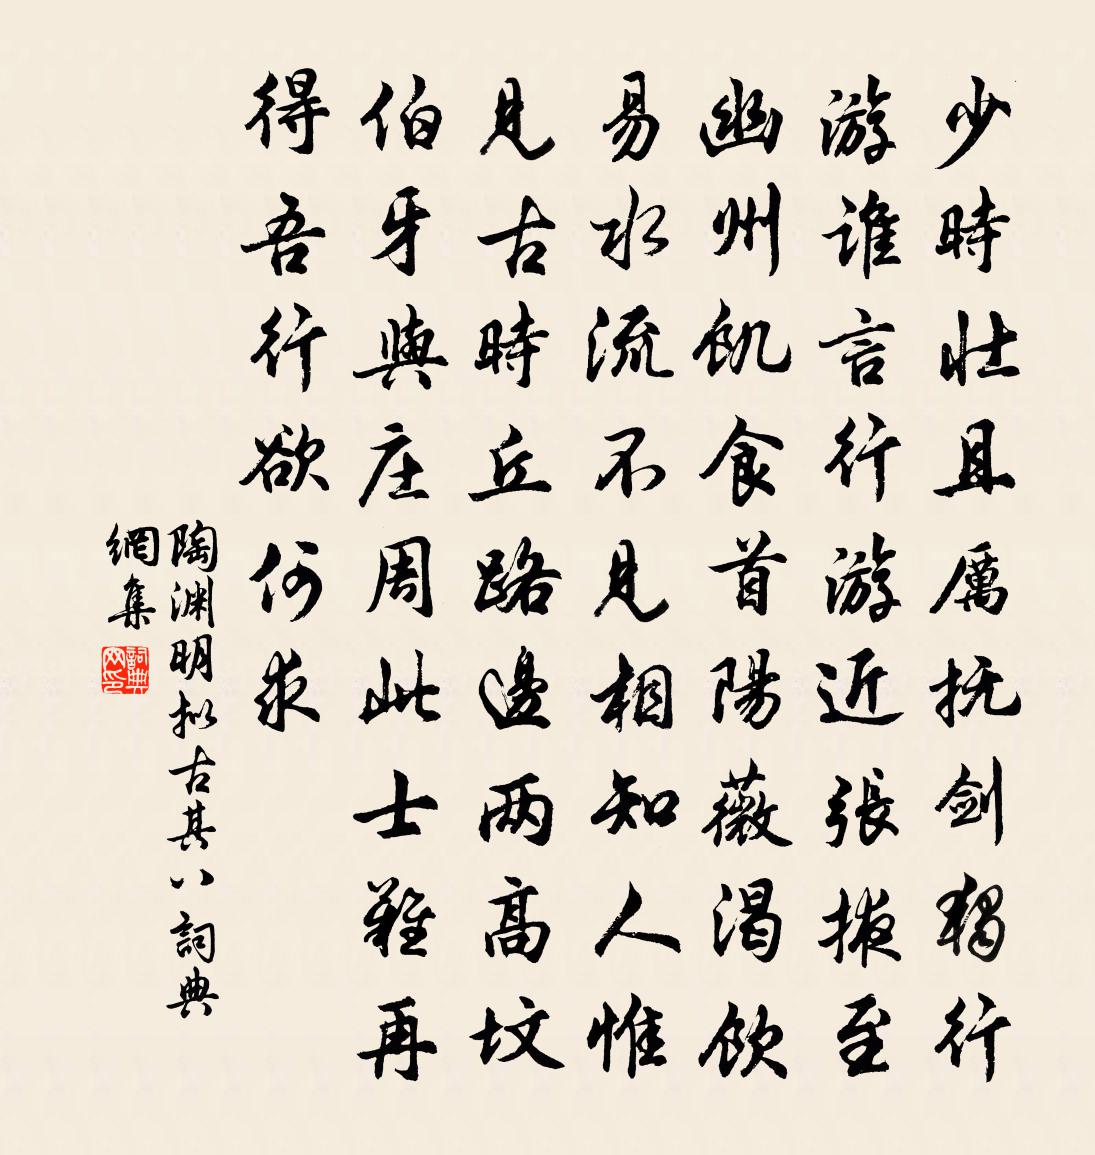 少時壯且厲抚劍獨行
游誰言行游近張掖至
幽州飢食首陽薇渴飲
易水流不見相知人惟
見古時丘路邊两高坟
伯牙與庄周此士難再
得吾行欲何求
陶渊明拟古其八詞典
網集
詞典
网印